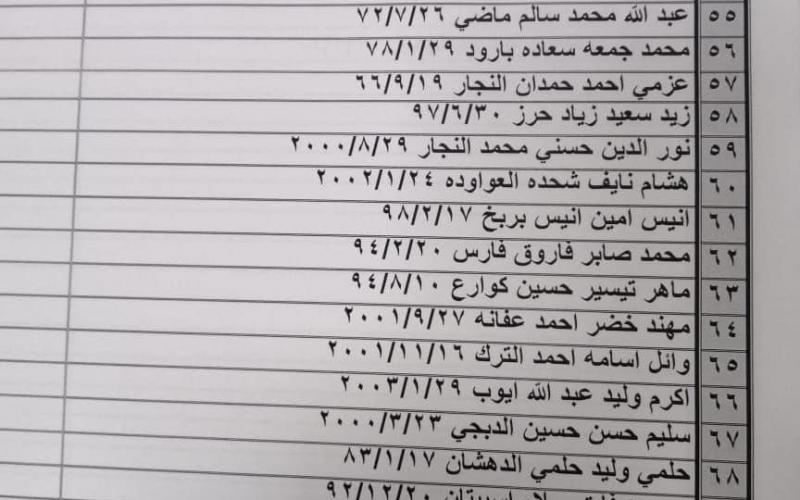 ٥٥ عبد الله محمد سالم ماضي ٧٢/٧/٢٦
٥٦ محمد جمعه سعاده بارود ٧٨/١/٢٩
٥٧ عزمي احمد حمدان النجار ٦٦/٩/١٩
٥٨ زيد سعيد زياد حرز ٩٧/٦/٣٠
٥٩ نور الدين حسني محمد النجار ٢٠٠٠/٨/٢٩
٦٠ هشام نايف شحده العواوده ٢٠٠٢/١/٢٤
٦١ انيس امين انيس بربخ ٩٨/٢/١٧
٦٢ محمد صابر فاروق فارس ٩٤/٢/٢٠
٦٣ ماهر تيسير حسين كوارع ٩٤/٨/١٠
٦٤ مهند خضر احمد عفانه ٢٠٠١/٩/٢٧
٦٥ وائل اسامه احمد الترك ٢٠٠١/١١/١٦
٦٦ اكرم وليد عبد الله ايوب ٢٠٠٣/١/٢٩
٦٧ سليم حسن حسين الدبجي ٢٠٠٠/٣/٢٣
٦٨ حلمي وليد حلمي الدهشان ٨٣/١/١٧
٩٢/١٢/٢٠